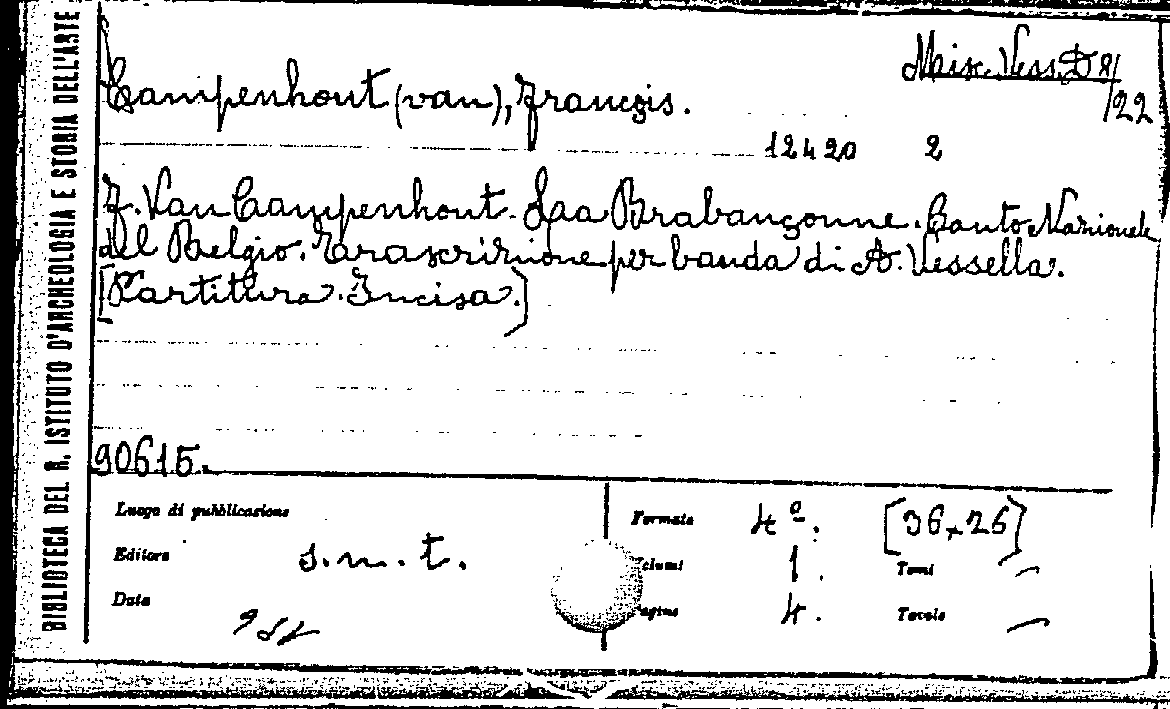 BIBLIOTECA DEL R. ISTITUTO D'ARCHEOLOGIA E STORIA DELL'ARTE
Misc. Vess. D 8/
/22
Campenhout (van), François.
12420 2
F. Van Campenhout. La Brabançonne. Canto Nazionale
del Belgio. Trascrizione per banda di A. Vessella.
[Partitura. Incisa.]
90615.
Luogo di pubblicazione
Formato 4º. [36x26]
Editore s.n.t.
Volumi 1. Tomi —
Data
Pagine 4. Tavole —